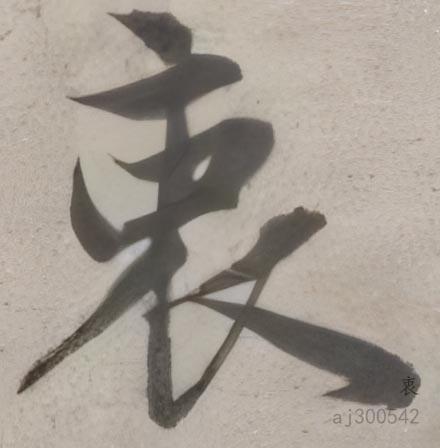 衷
衷
aj300542